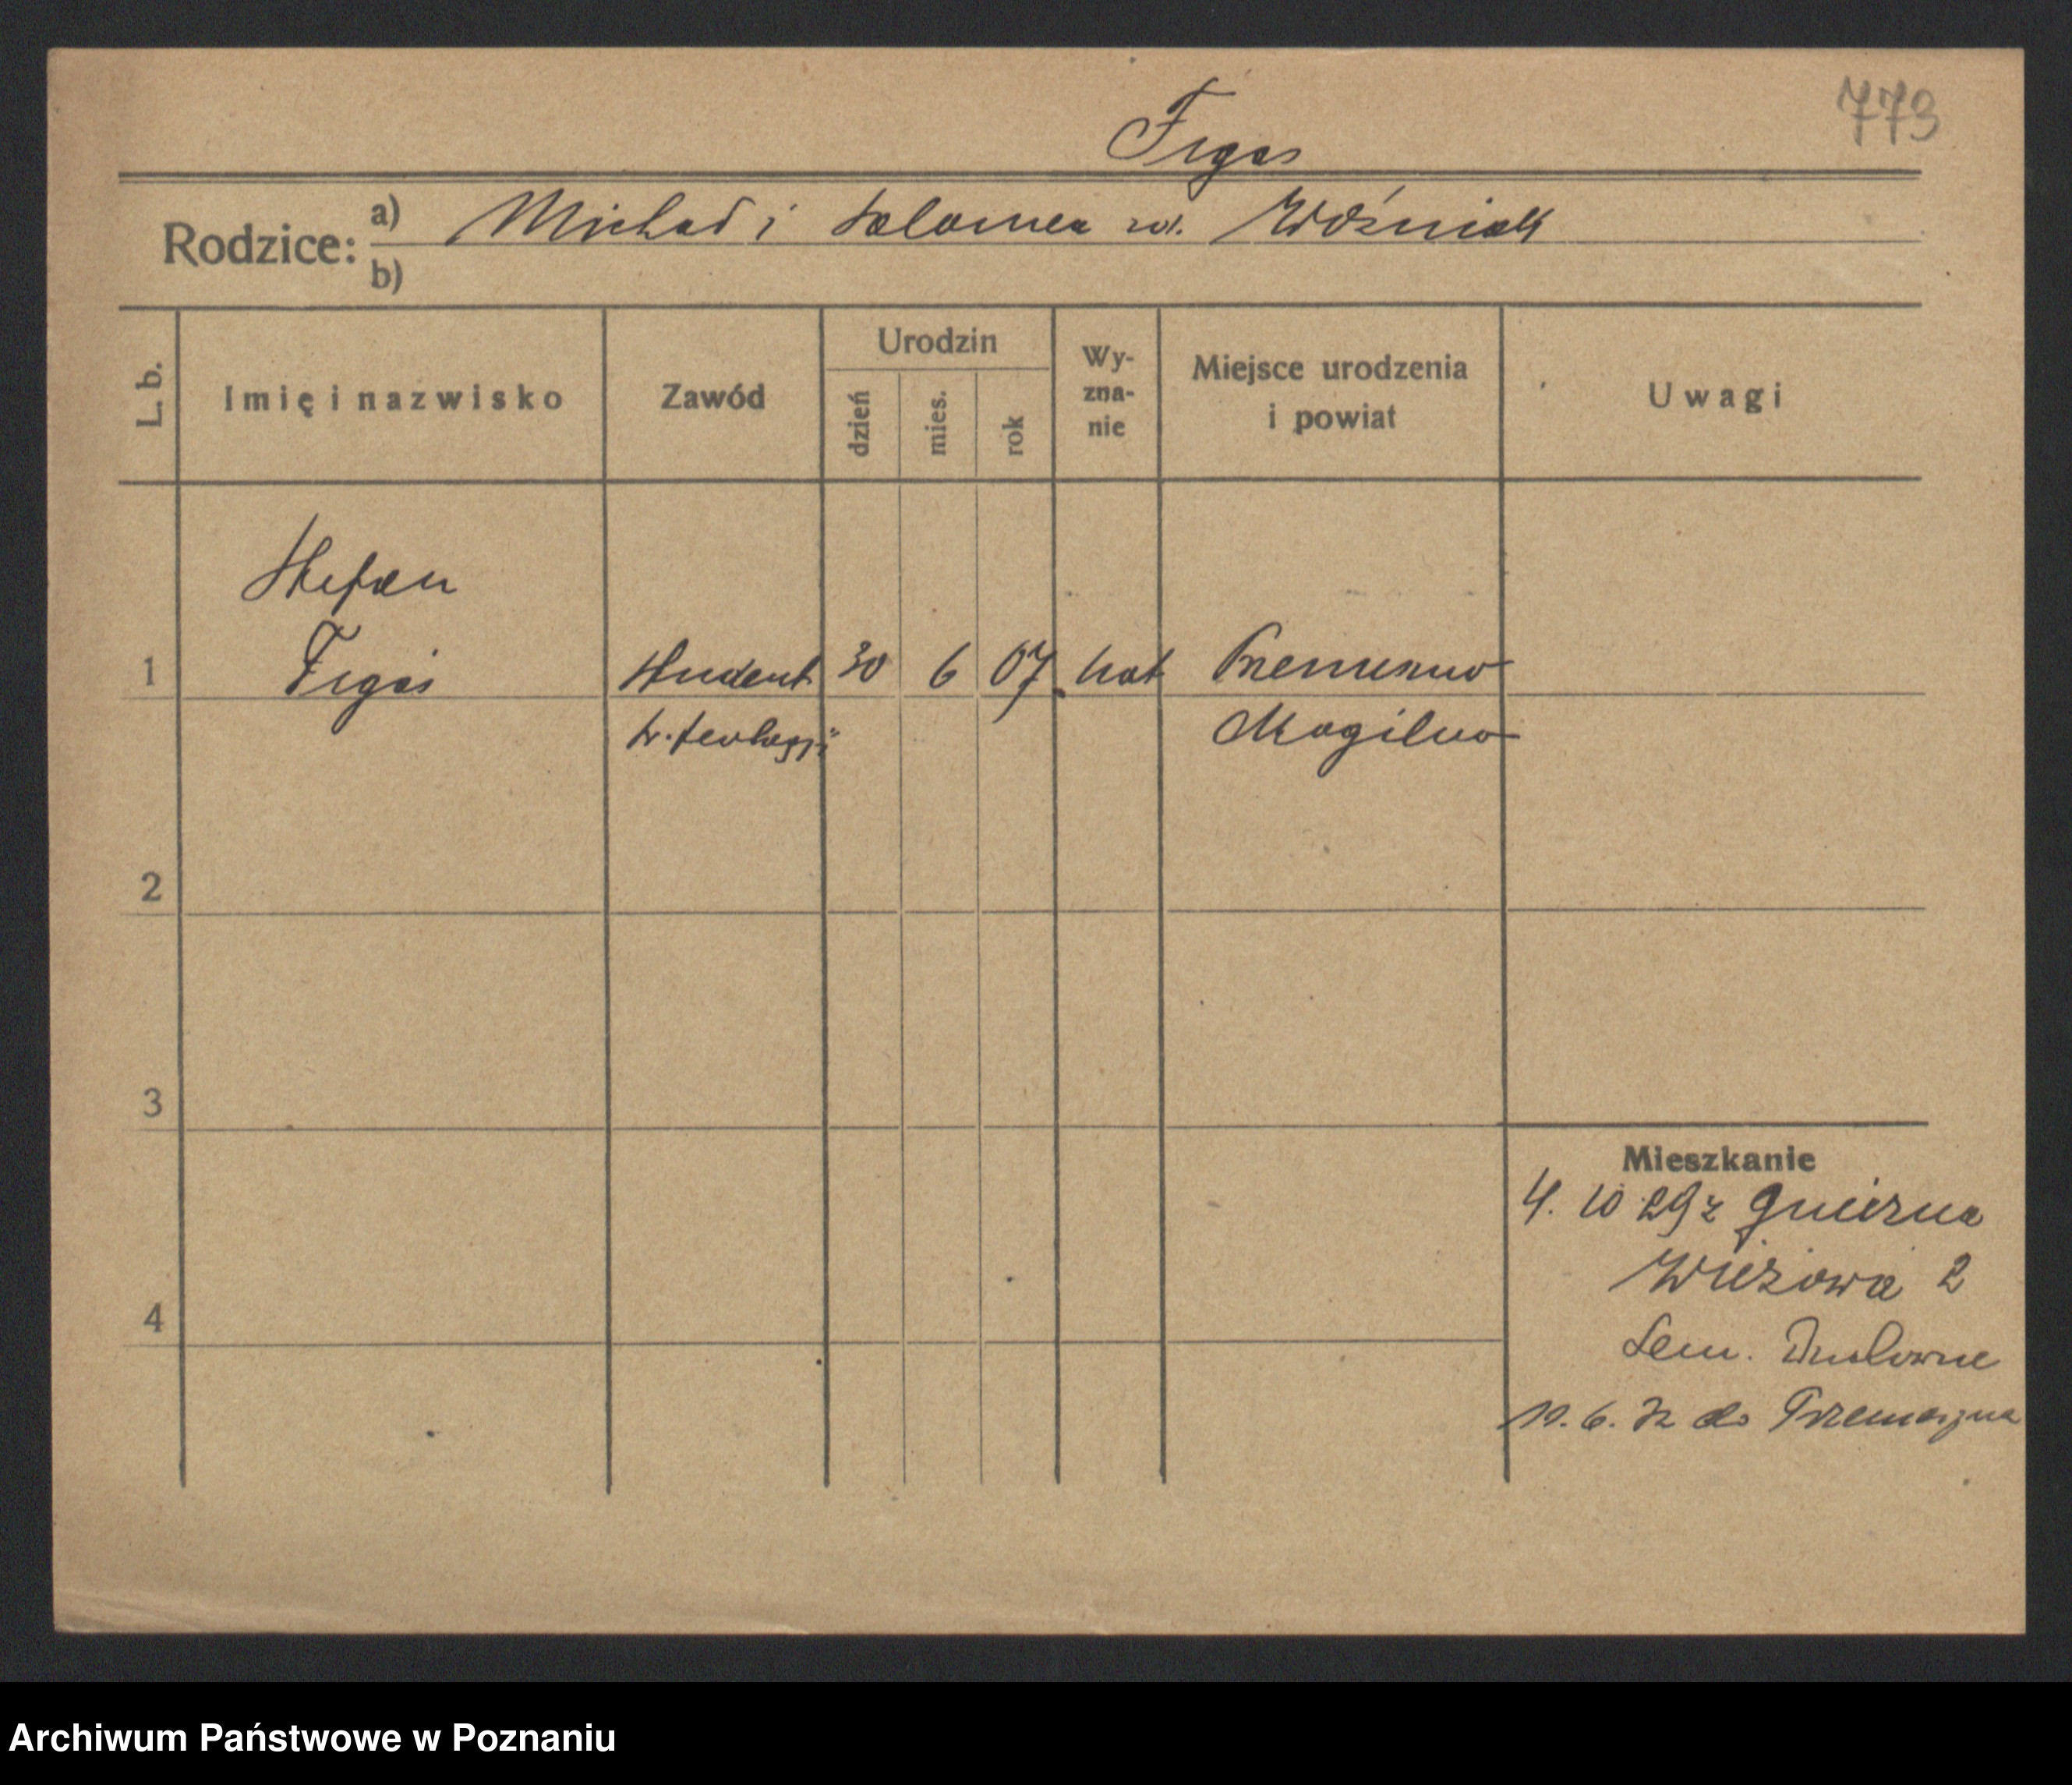 773
Figas
Rodzice: a) Michał i Salomea zd. Woźniak
b)
L. b.
Imię i nazwisko
Zawód
Urodzin
dzień
mies.
rok
Wy-
zna-
nie
Miejsce urodzenia
i powiat
Uwagi
Stefan
1 Figas student 30 6 07 kat
św. teologji Mogilno
2
3
4
Mieszkanie
4. 10 29 z Gniezna
Wieżowa 2
Sem. Duchowne
10. 6. 32 do Trzemeszna
Archiwum Państwowe w Poznaniu